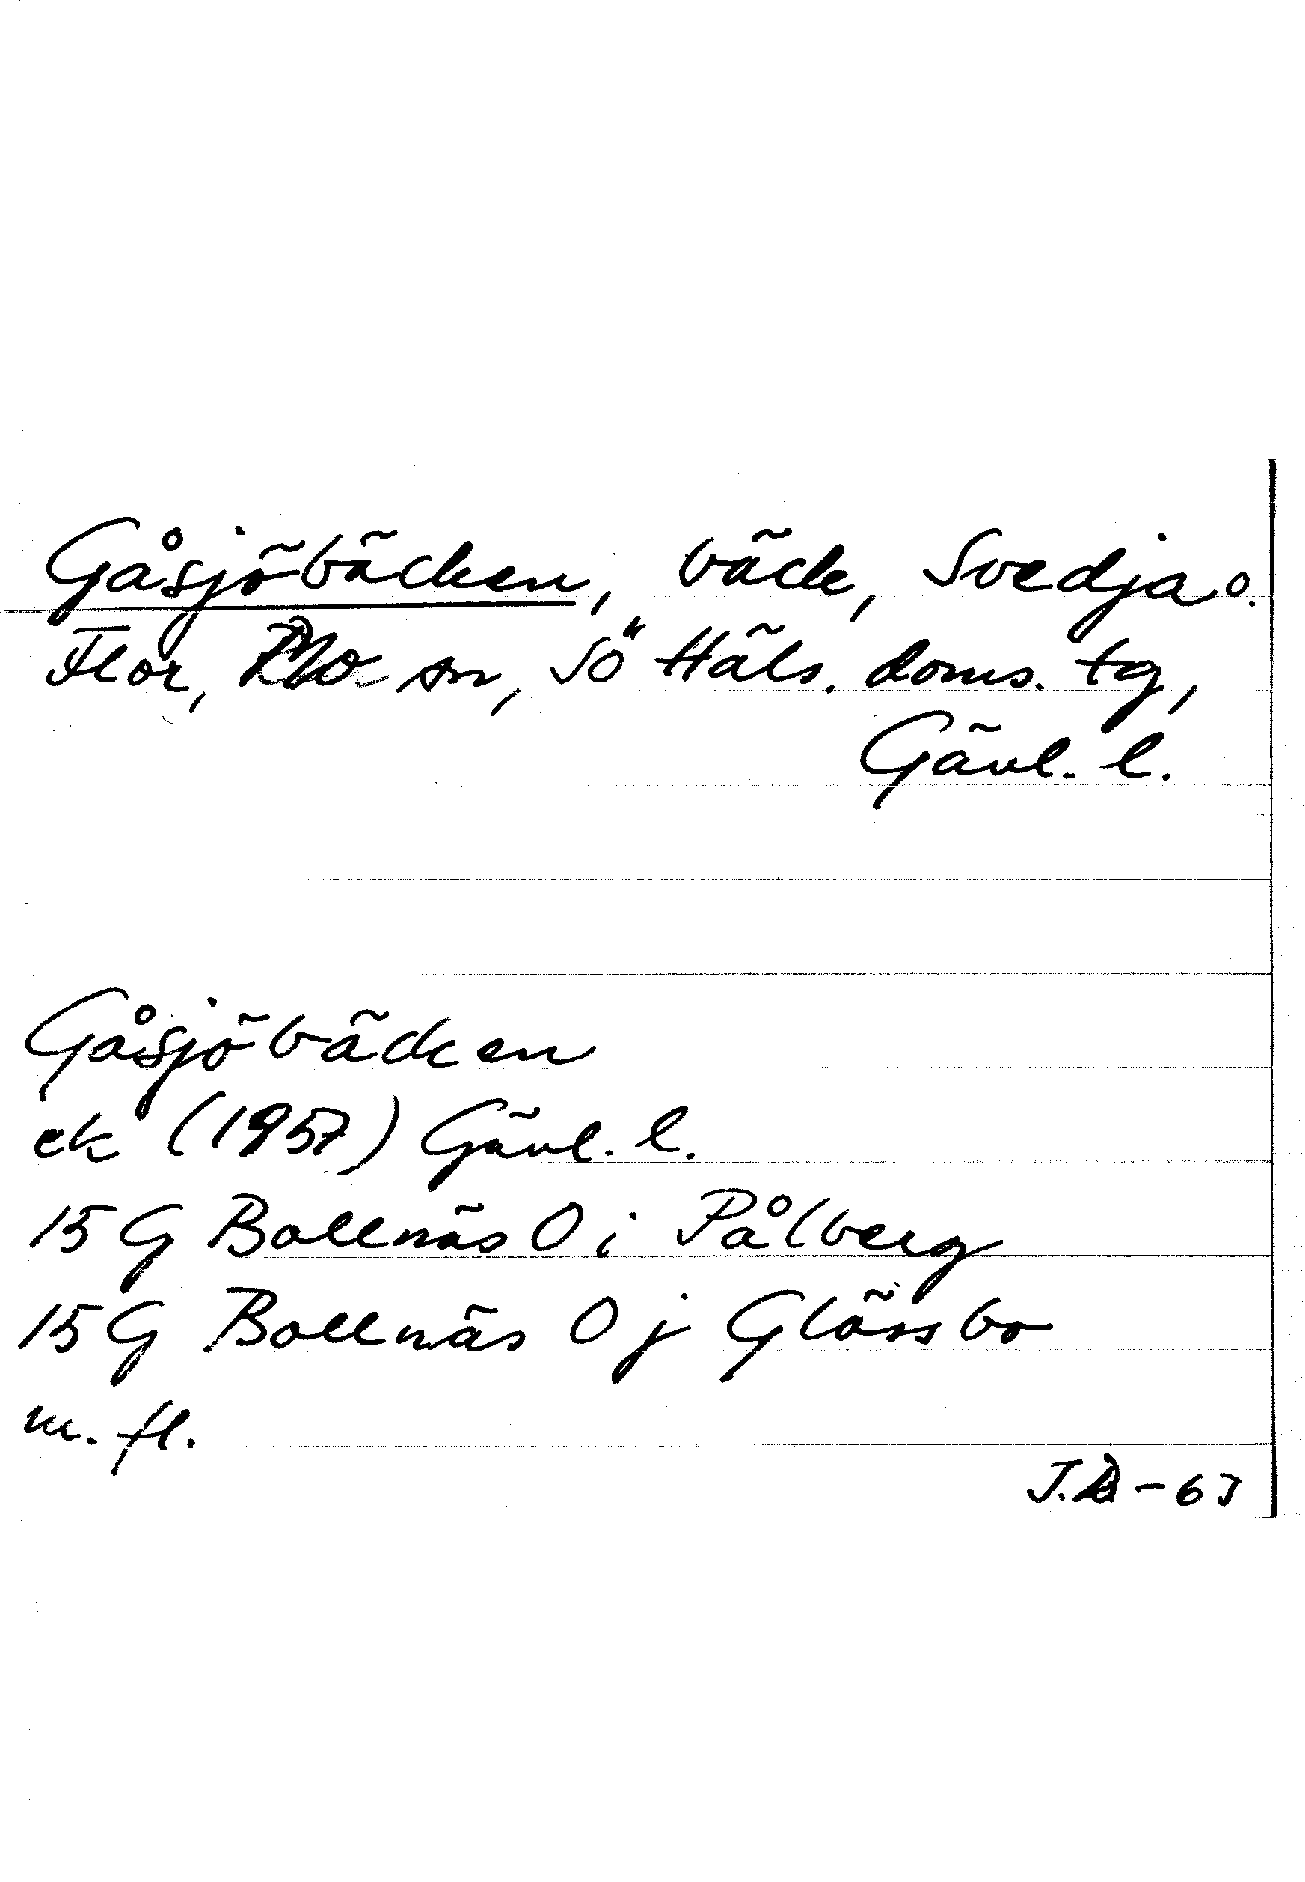 Gåsjöbäcken, bäck, Svedja o.
Flor, Mo sn, Sö Häls. doms. tg,
Gävl. l.
Gåsjöbäcken
ek (1957) Gävl. l.
15 G Bollnäs 0 i Pålberg
15 G Bollnäs 0 j Glössbo
m. fl.
J.B - 63